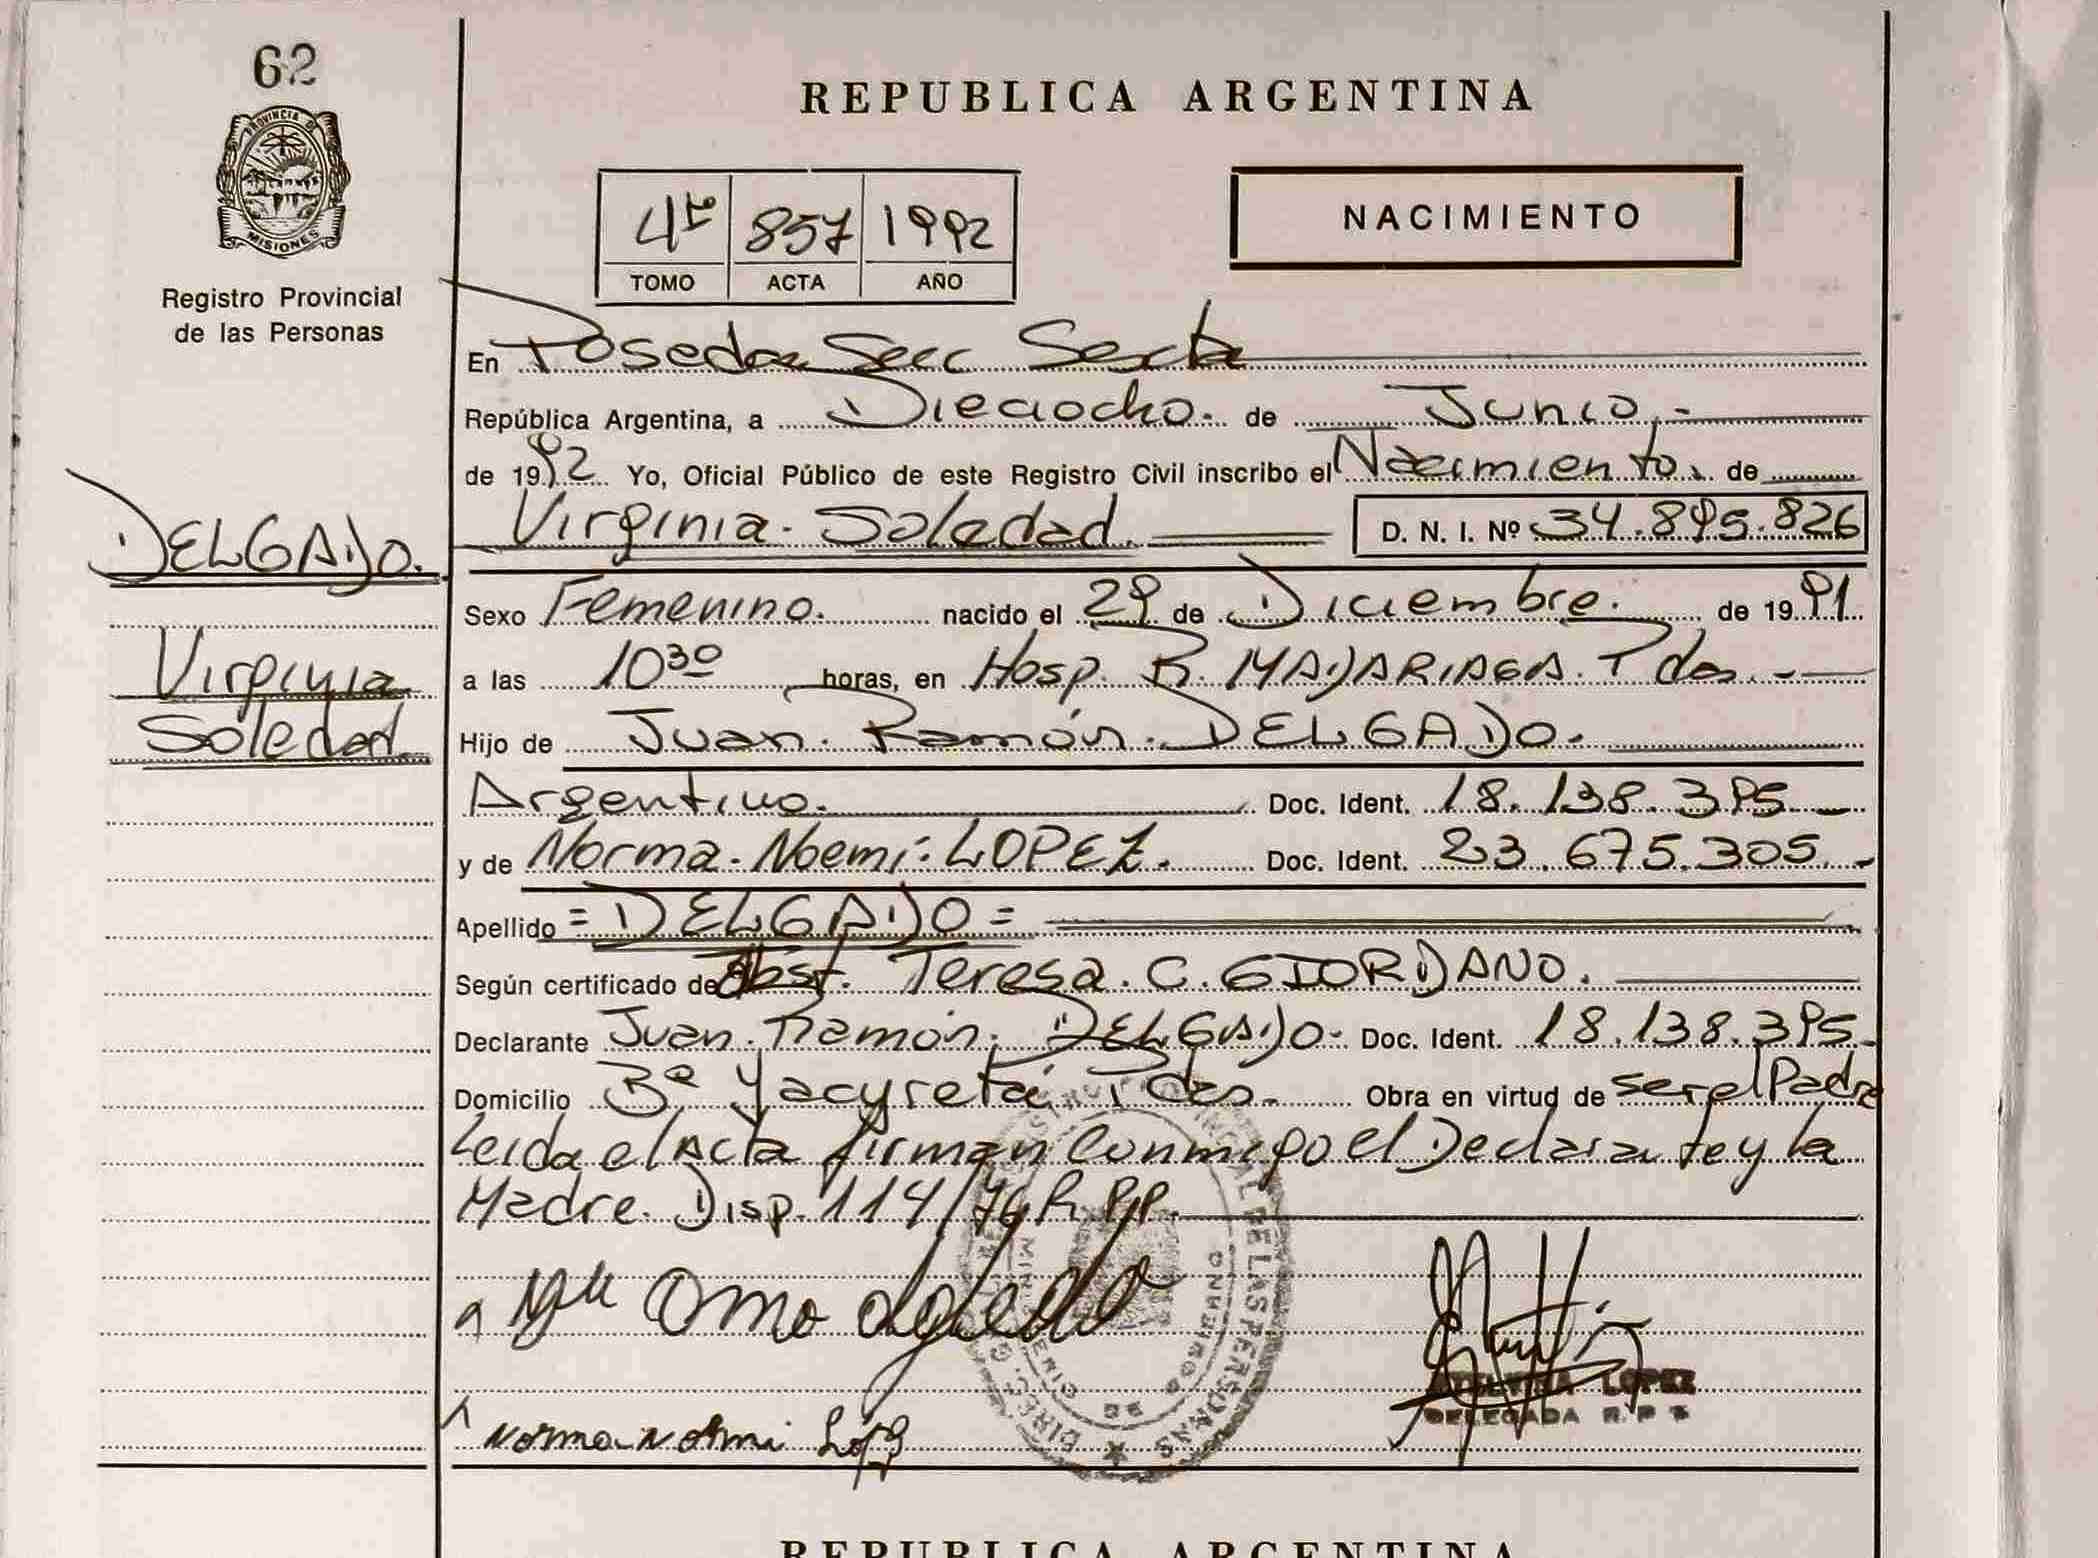 62
REPUBLICA ARGENTINA
PROVINCIA DE
MISIONES
Registro Provincial
de las Personas
4to 857 1992
TOMO ACTA AÑO
NACIMIENTO
En Posadas Secc Sexta
República Argentina, a Dieciocho. de Junio.-
de 1992 Yo, Oficial Público de este Registro Civil inscribo el Nacimiento. de
DELGADO.
Virginia. Soledad. D. N. I. Nº 34.895.826
Sexo Femenino. nacido el 29 de Diciembre. de 1991
Virginia
Soledad
a las 10 30 horas, en Hosp. R. MADARIAGA. Pdas.-
Hijo de Juan. Ramón. DELGADO.
Argentino. Doc. Ident. 18.138.395
y de Norma. Noemí. LOPEZ. Doc. Ident. 23.675.305.-
Apellido = DELGADO =
Según certificado de Obst. Teresa. C. GIORDANO.
Declarante Juan. Ramón. DELGADO- Doc. Ident. 18.138.395.
Domicilio Bº Yacyretá Pdas. Obra en virtud de ser el Padre
Leida el Acta firman Conmigo el Declarante y la
Madre. Disp. 114/76 R.P.P.
Norma Noemi
LOPEZ
DELEGADA R. P.
DIRECC
DE LAS PERSONAS
REPUBLICA ARGENTINA